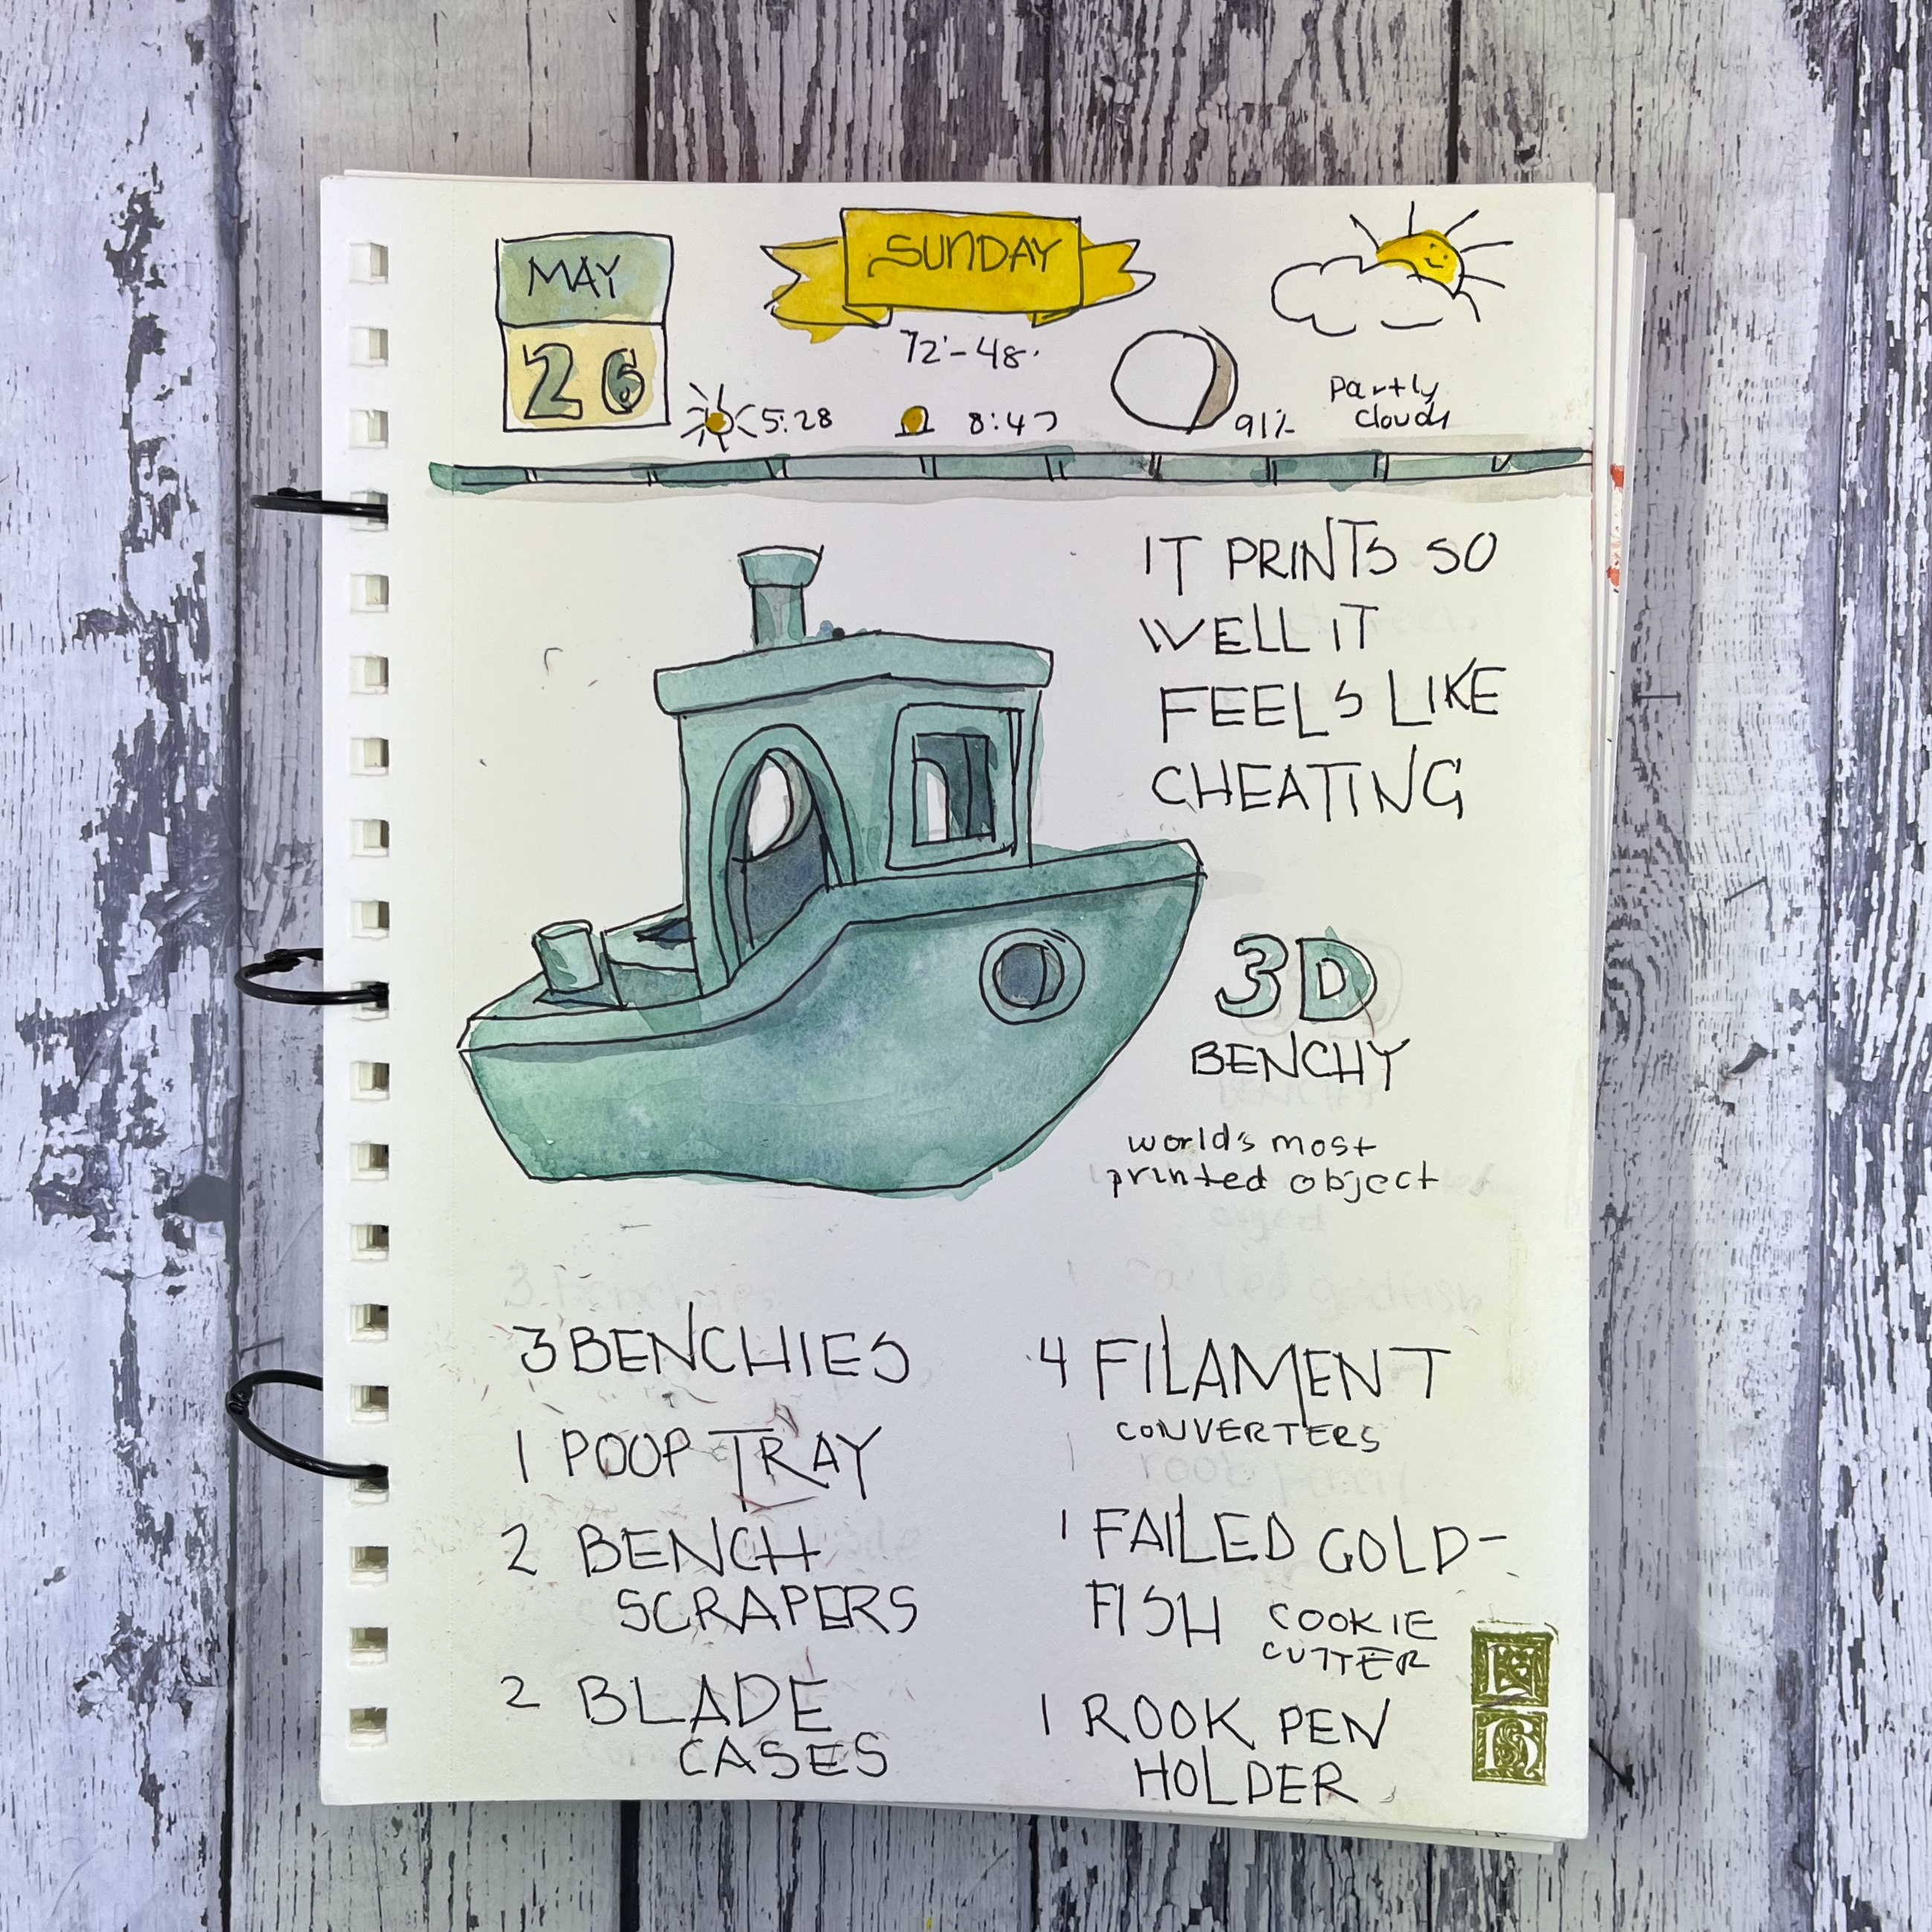 MAY
26
SUNDAY
72°-48°
5:28
8:47
91%
Partly
Cloudy
IT PRINTS SO
WELL IT
FEELS LIKE
CHEATING
3D
BENCHY
world's most
printed object
3 BENCHIES
1 POOP TRAY
2 BENCH
SCRAPERS
2 BLADE
CASES
4 FILAMENT
CONVERTERS
1 FAILED GOLD-
FISH COOKIE
CUTTER
1 ROOK PEN
HOLDER